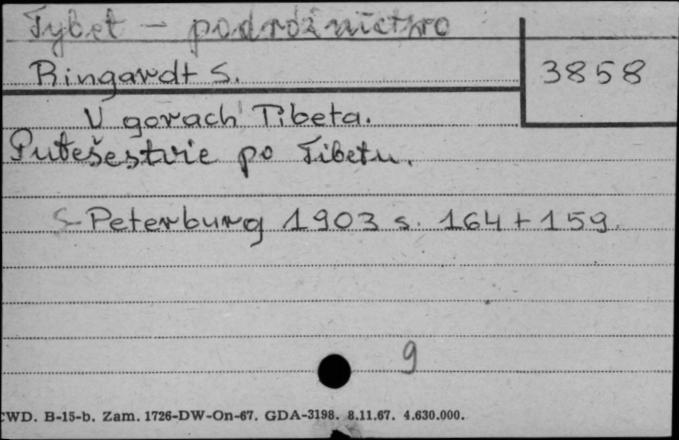 Tybet – podróżnictwo
Ringardt S.
3858
V gorach Tibeta.
Putešestvie po Tibetu.
S-Peterburg 1903 s. 164 + 159.
9
CWD. B-15-b. Zam. 1726-DW-On-67. GDA-3198. 8.11.67. 4.630.000.